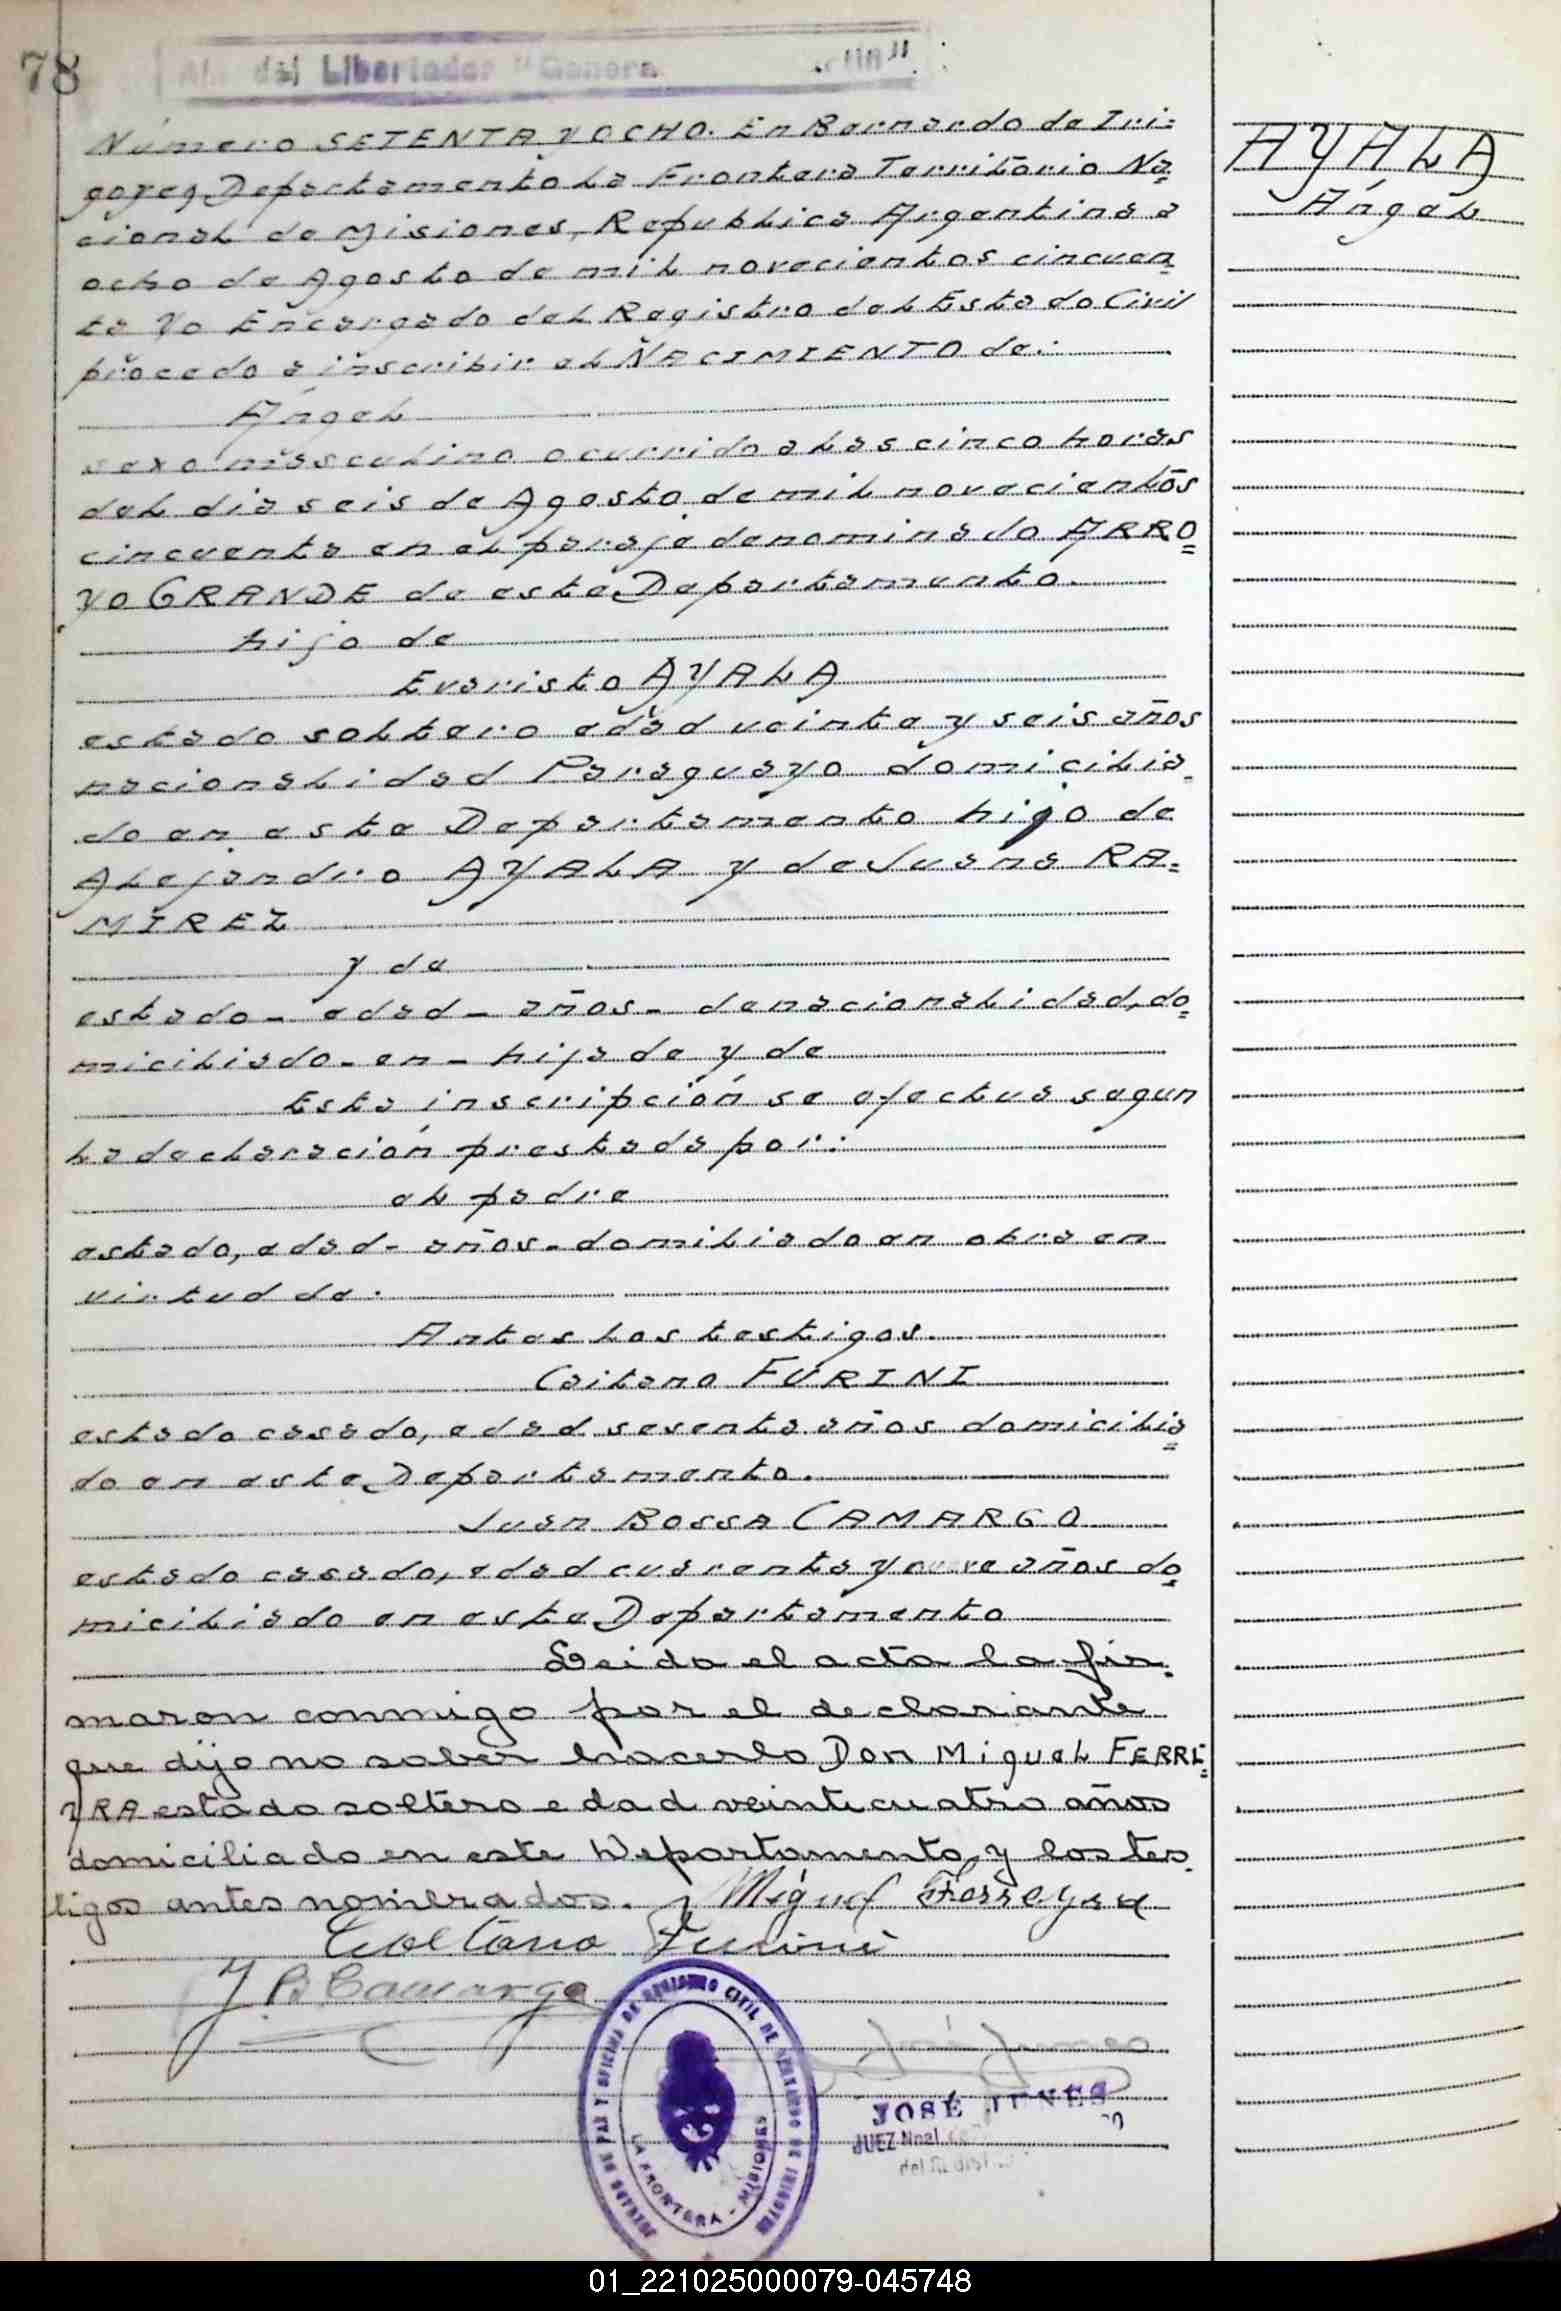 78
Año del Libertador "General
Número SETENTA y OCHO. En Bernardo de Iri=
goyen Departamento La Frontera Territorio Na=
cional de Misiones, Republica Argentina a
ocho de Agosto de mil novecientos cincuen=
ta Yo Encargado del Registro del Estado Civil
procedo a inscribir el NACIMIENTO de:
Ángel
sexo masculino ocurrido a las cinco horas
del dia seis de Agosto de mil novecientos
cincuenta en el paraje denominado ARRO=
YO GRANDE de este Departamento.
hijo de
Evaristo AYALA
estado soltero edad veinte y seis años
nacionalidad Paraguayo domicilia=
do en este Departamento hijo de
Alejandro AYALA y de Juana RA=
MIREZ
y de
estado - edad - años - de nacionalidad, do=
miciliado - en - hija de y de
Esta inscripción se efectua segun
la declaración prestada por:
el padre
estado, edad - años - domiliado en obra en
virtud de.
Antes los testigos.
Caitano FURINI
estado casado, edad sesenta años domicilia=
do en este Departamento.
Juan Bossa CAMARGO
estado casado, edad cuarenta y nueve años do=
miciliado en este Departamento
Leida el acta la fir=
maron conmigo por el declarante
que dijo no saber hacerlo Don Miguel FERRE=
YRA estado soltero edad veinticuatro años
domiciliado en este Departamento, y los tes=
tigos antes nombrados.
Miguel Ferreyra
Caetano Furini
J B Camargo
JUZGADO DE PAZ Y OFICINA DE REGISTRO CIVIL DE BERNARDO DE IRIGOYEN
LA FRONTERA - MISIONES
JOSÉ
JUEZ Nnal.
del
AYALA
Ángel
01_221025000079-045748